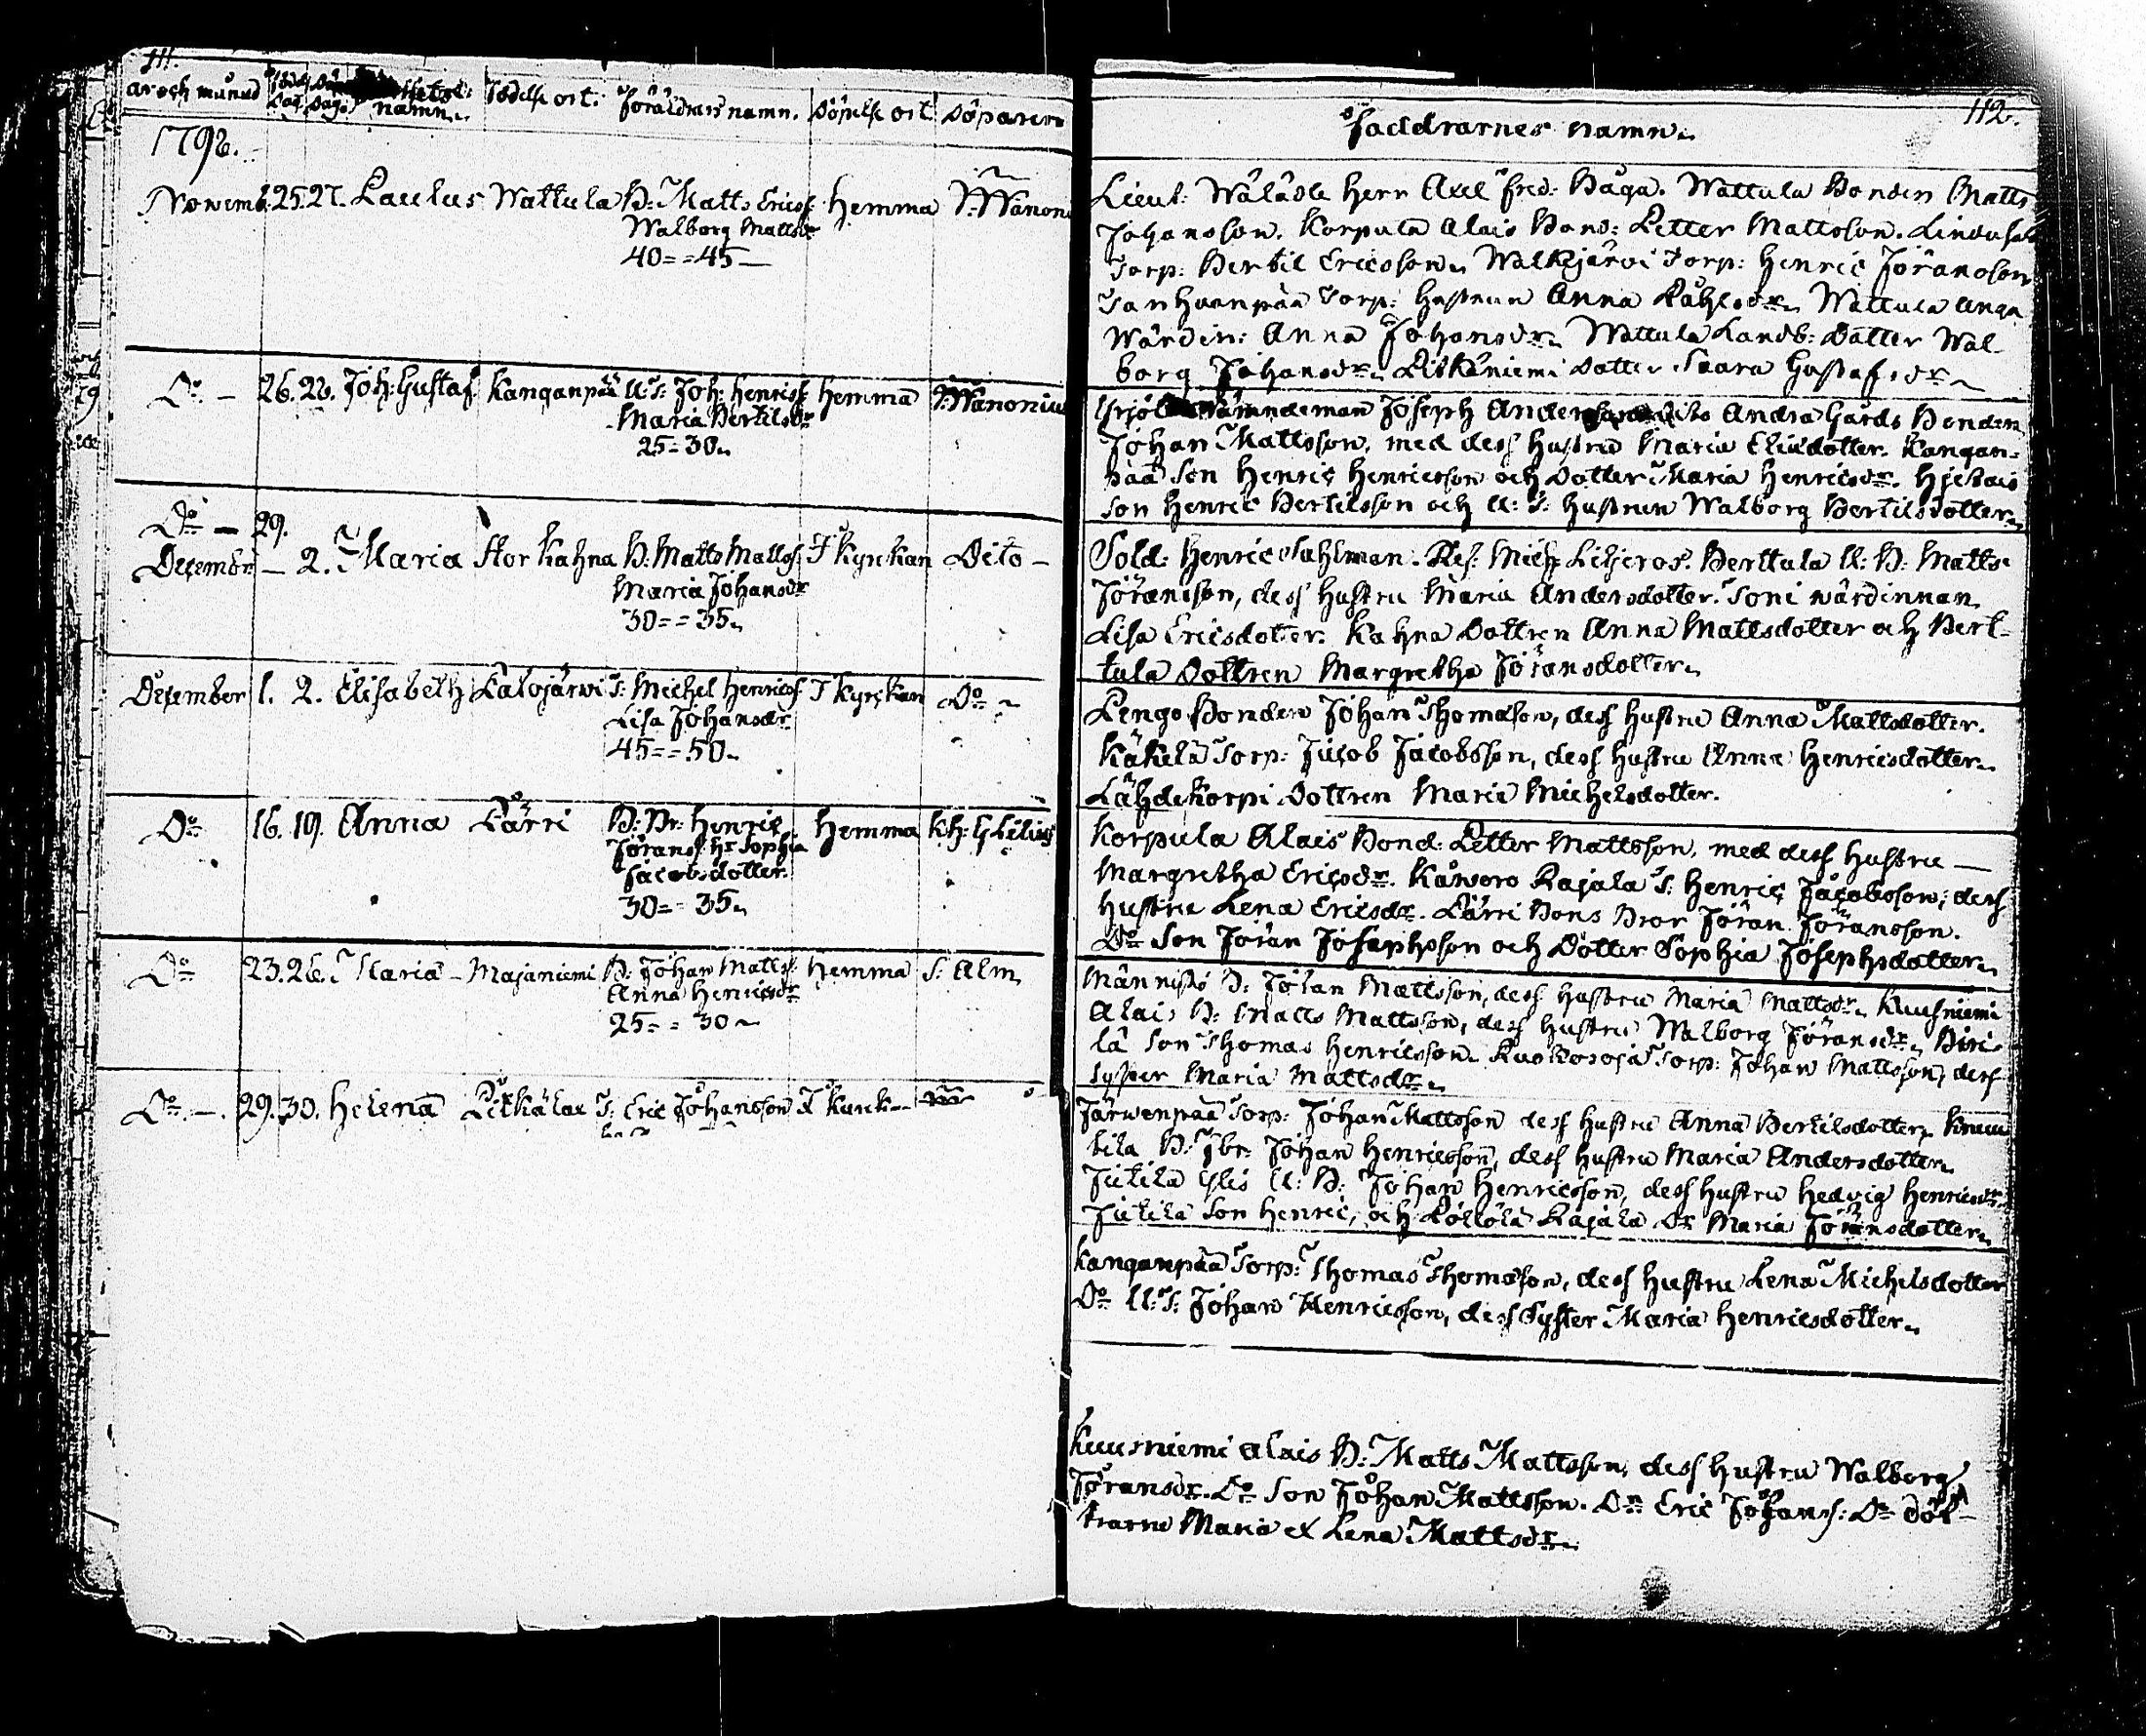 111.
år och månad Födels Dag Döp Dag namn. Födelse ort. Föräldrars namn. Döpelse ort Döparen
1792.
Novemb. 25. 27. Paulus Wattula B: Matts Ericss. Hemma P: Wanoni
Walborg Mattsdr
40 = = 45 —
Do — 26. 28. Joh: Gustaf Kanganpää U:T: Joh: Henricss. Hemma P: Wanonius
Maria Bertilsdr
25 = 30
Do — 29.
December — 2. Maria Storkahna B: Matts Mattss. I Kyrkan Dito —
Maria Johansdr
30 = = 35
December 1. 2. Elisabeth Latojärwi T: Michel Henricss. I Kyrkan Do
Lisa Johansdr
45 = = 50
Do 16. 19. Anna Pärri B: Br: Henric Hemma Kh: Gelilius
Jöranss. Hr Sophia
Jacobsdotter
30 = = 35
Do 23. 26. Maria — Majaniemi B: Johan Mattss. Hemma S: Alm
Anna Henricsdr
25 = = 30
Do —. 29. 30. Helena T: Eric Johansson
112.
Faddrarnes namn
Lieut: Wälädle Herr Axel Fred: Båga. Wattula Bonden Matts
Johansson. Korpula Alais Bond: Petter Mattsson.
Torp: Bertil Ericsson. Walkjärvi Torp: Henric Jöransson
Torp: Hustrun Anna Påhlsdr Wattula
Wärdin: Anna Johansdr Wattula Landb: Dotter Wal-
borg Johansdr Pitkäniemi Dotter Saara Gustafsdr
Yrjölä Nämndeman Joseph Andersson Dito Andra Gårds Bonden
Johan Mattsson, med dess Hustru Maria Eliædotter. Kangan-
pää Son Henric Henricsson och Dotter Maria Henricsdr. Hjetais
Son Henric Bertilsson och U: T: Hustrun Walborg Bertilsdotter
Sold: Henric Stahlman. Res: Mich Liljeros. Berttula U: B: Matts
Jöransson, dess Hustru Maria Andersdotter. Toni wärdinnan
Lisa Ericsdotter. Kahna Dottren Anna Mattsdotter och Bert-
tula Dottren Margretha Jöransdotter
Pengo Bonden Johan Thomasson, dess Hustru Anna Mattsdotter.
Käkelä Torp: Jacob Jacobsson, dess Hustru Anna Henricsdotter
Lähdekorpi Dottren Maria Michelsdotter.
Korpula Alais Bond: Petter Mattsson, med dess Hustru —
Margretha Ericsdr. Kåworo Rajala T: Henric Jacobsson, dess
Hustru Lena Ericsdr. Pärri Bons Bror Jöran Jöransson.
Do Son Jöran Josephsson och Dotter Sophia Josephsdotter
Männistö B: Johan Mattsson, dess Hustru Maria Mattsdr Kuusniemi
Alais B: Matts Mattsson, dess Hustru Walborg Jöransdr Piri-
lä Son Thomas Henricsson. Ruokosoja Torp: Johan Mattsson, dess
Syster Maria Mattsdr
Järwenpää Torp: Johan Mattsson dess Hustru Anna Bertilsdotter. Knuu
tila B: Johan Henricsson, dess Hustru Maria Andersdotter
Jutila Ylis U: B: Johan Henricsson, dess Hustru Hedvig Henricsdr
Jutila Son Henric, och Rajala Dr Maria Jöransdotter
Kanganpää Torp: Thomas Thomasson, dess Hustru Lena Michelsdotter
Do U: T: Johan Henricsson, dess Syster Maria Henricsdotter
Kuusniemi Alais B: Matts Mattsson, dess Hustru Walborg
Jöransdr. Do Son Johan Mattsson. Do Eric Johanss: Do döt-
trarne Maria & Lena Mattsdr